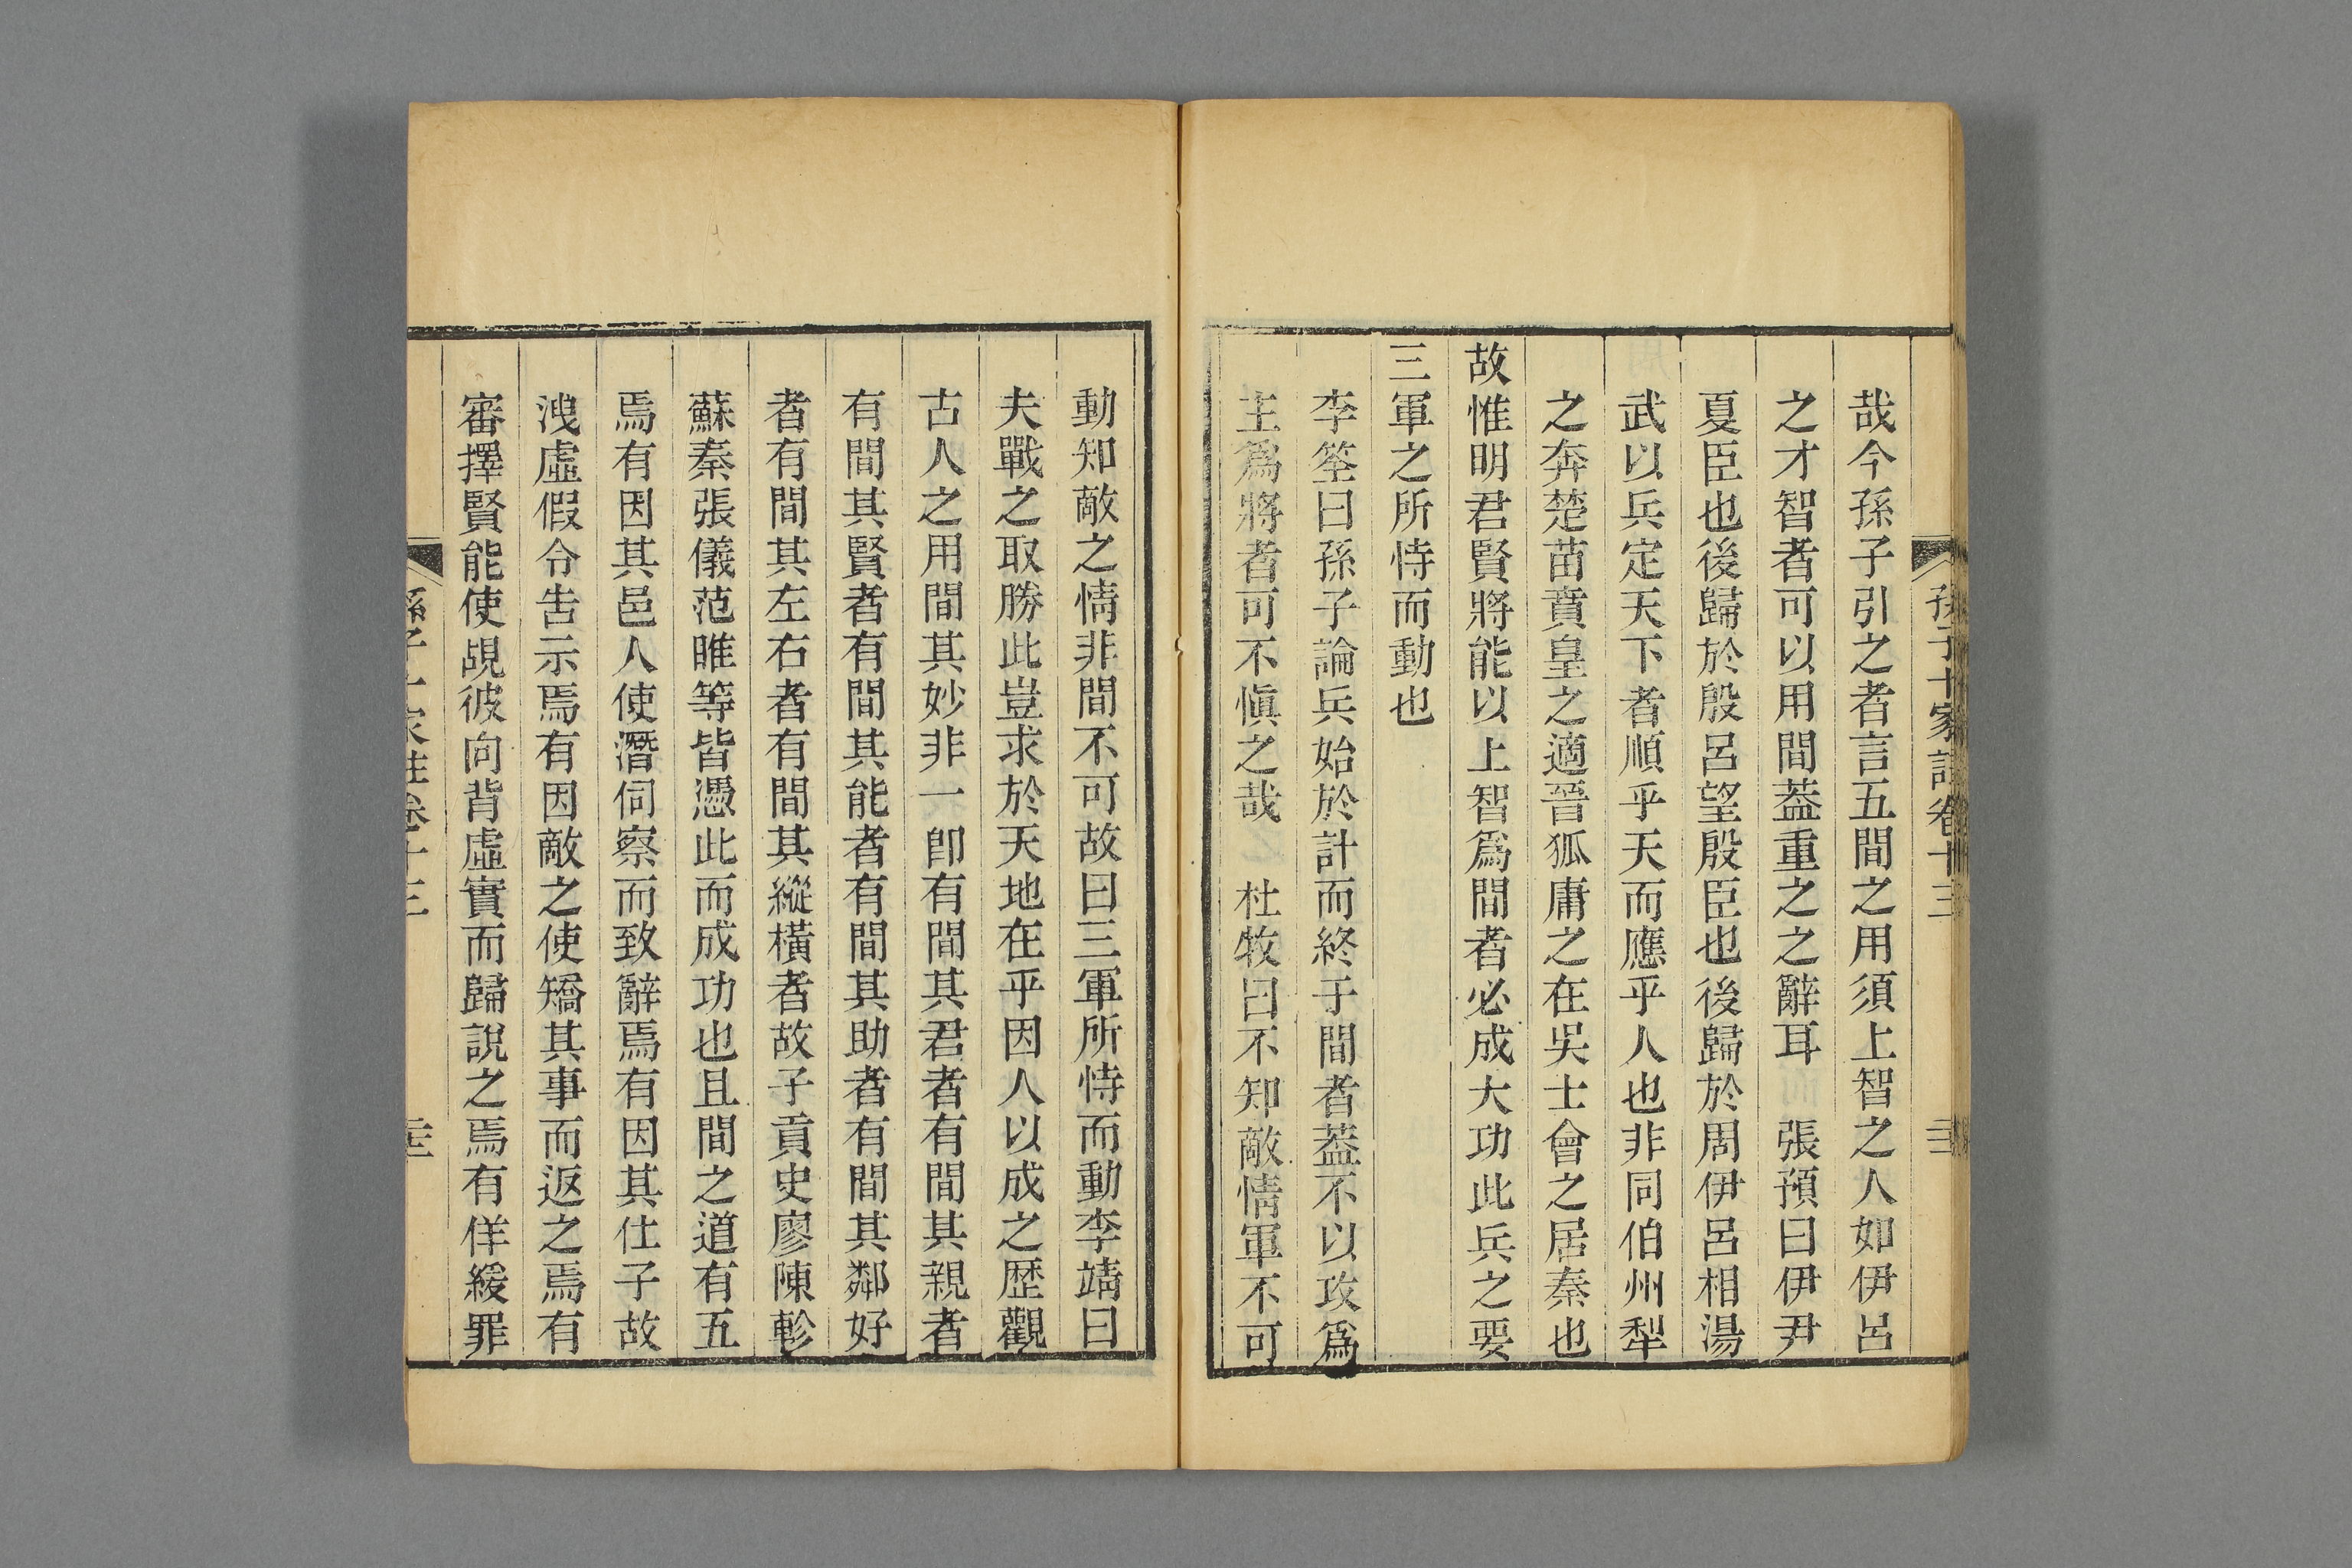 孫子十家註卷十三
哉今孫子引之者言五間之用須上智之人如伊呂
之才智者可以用間葢重之之辭耳　張預曰伊尹
夏臣也後歸於殷呂望殷臣也後歸於周伊呂相湯
武以兵定天下者順乎天而應乎人也非同伯州犁
之奔楚苗賁皇之適晉狐庸之在吳士會之居秦也
故惟明君賢將能以上智爲間者必成大功此兵之要
三軍之所恃而動也
李筌曰孫子論兵始於計而終于間者葢不以攻爲
主爲將者可不慎之哉　杜牧曰不知敵情軍不可
動知敵之情非間不可故曰三軍所恃而動李靖曰
夫戰之取勝此豈求於天地在乎因人以成之歴觀
古人之用間其妙非一卽有間其君者有間其親者
有間其賢者有間其能者有間其助者有間其鄰好
者有間其左右者有間其縱橫者故子貢史廖陳軫
蘇秦張儀范睢等皆憑此而成功也且間之道有五
焉有因其邑人使潛伺察而致辭焉有因其仕子故
洩虛假令告示焉有因敵之使矯其事而返之焉有
審擇賢能使覘彼向背虛實而歸說之焉有佯緩罪
孫子十家註卷十三